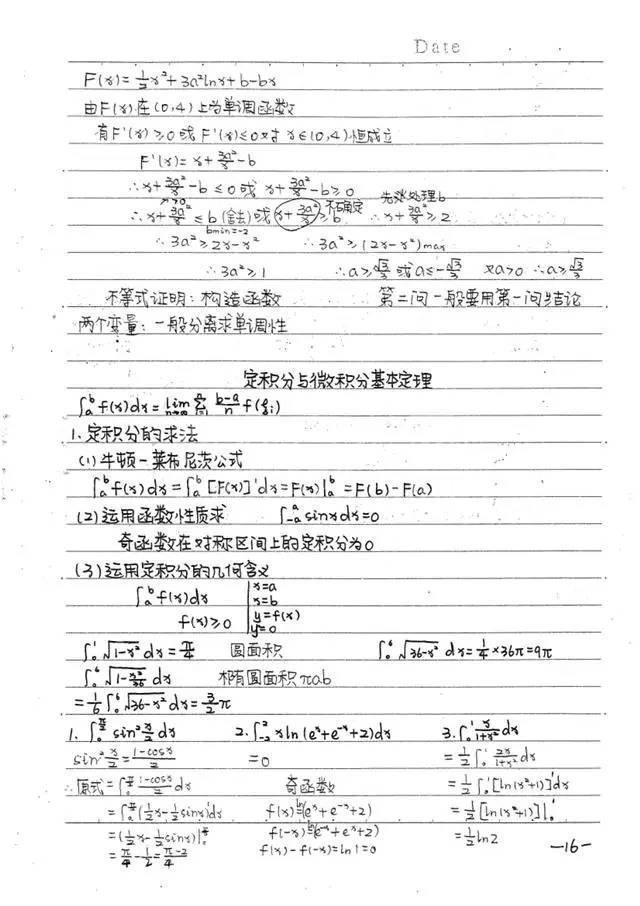 Date
F(x)=½x²+3a²lnx+b-bx
由F(x)在(0,4)上为单调函数
有F'(x)≥0或F'(x)≤0对x∈(0,4)恒成立
F'(x)=x+3a²/x-b
∴x+3a²/x-b≤0或x+3a²/x-b≥0 先张处理b
x>0 不确定
∴x+3a²/x≤b(舍去)或x+3a²/x≥b ∴x+3a²/x≥2
bmin=-2
∴3a²≥2x-x² ∴3a²≥(2x-x²)max
∴3a²≥1 ∴a≥√3/3或a≤-√3/3 又a>0 ∴a≥√3/3
不等式证明:构造函数 第二问一般要用第一问结论
两个变量:一般分离求单调性
定积分与微积分基本定理
∫ₐᵇf(x)dx=lim n→∞ Σ (b-a)/n f(ξi)
1.定积分的求法
(1)牛顿-莱布尼茨公式
∫ₐᵇf(x)dx=∫ₐᵇ[F(x)]'dx=F(x)|ₐᵇ=F(b)-F(a)
(2)运用函数性质求 ∫₋ₐᵃsinxdx=0
奇函数在对称区间上的定积分为0
(3)运用定积分的几何含义
∫ₐᵇf(x)dx x=a
x=b
f(x)≥0 y=f(x)
y=0
∫₀¹√(1-x²)dx=π/4 圆面积 ∫₀⁶√(36-x²)dx=¼×36π=9π
∫₀⁶√(1-x²/36)dx 椭圆面积πab
=1/6∫₀⁶√(36-x²)dx=3/2π
1.∫₀^(π/2)sin²x/2dx 2.∫₋₂²xln(eˣ+e⁻ˣ+2)dx 3.∫₀¹x/(1+x²)dx
sin²x/2=(1-cosx)/2 =0 =½∫₀¹2x/(1+x²)dx
∴原式=∫₀^(π/2)(1-cosx)/2dx 奇函数 =½∫₀¹[ln(x²+1)]'dx
=∫₀^(π/2)(½x-½sinx)'dx f(x)=ln(eˣ+e⁻ˣ+2) =½[ln(x²+1)]|₀¹
=(½x-½sinx)|₀^(π/2) f(-x)=ln(e⁻ˣ+eˣ+2) =½ln2
=π/4-1/2=(π-2)/4 f(x)-f(-x)=ln1=0
-16-